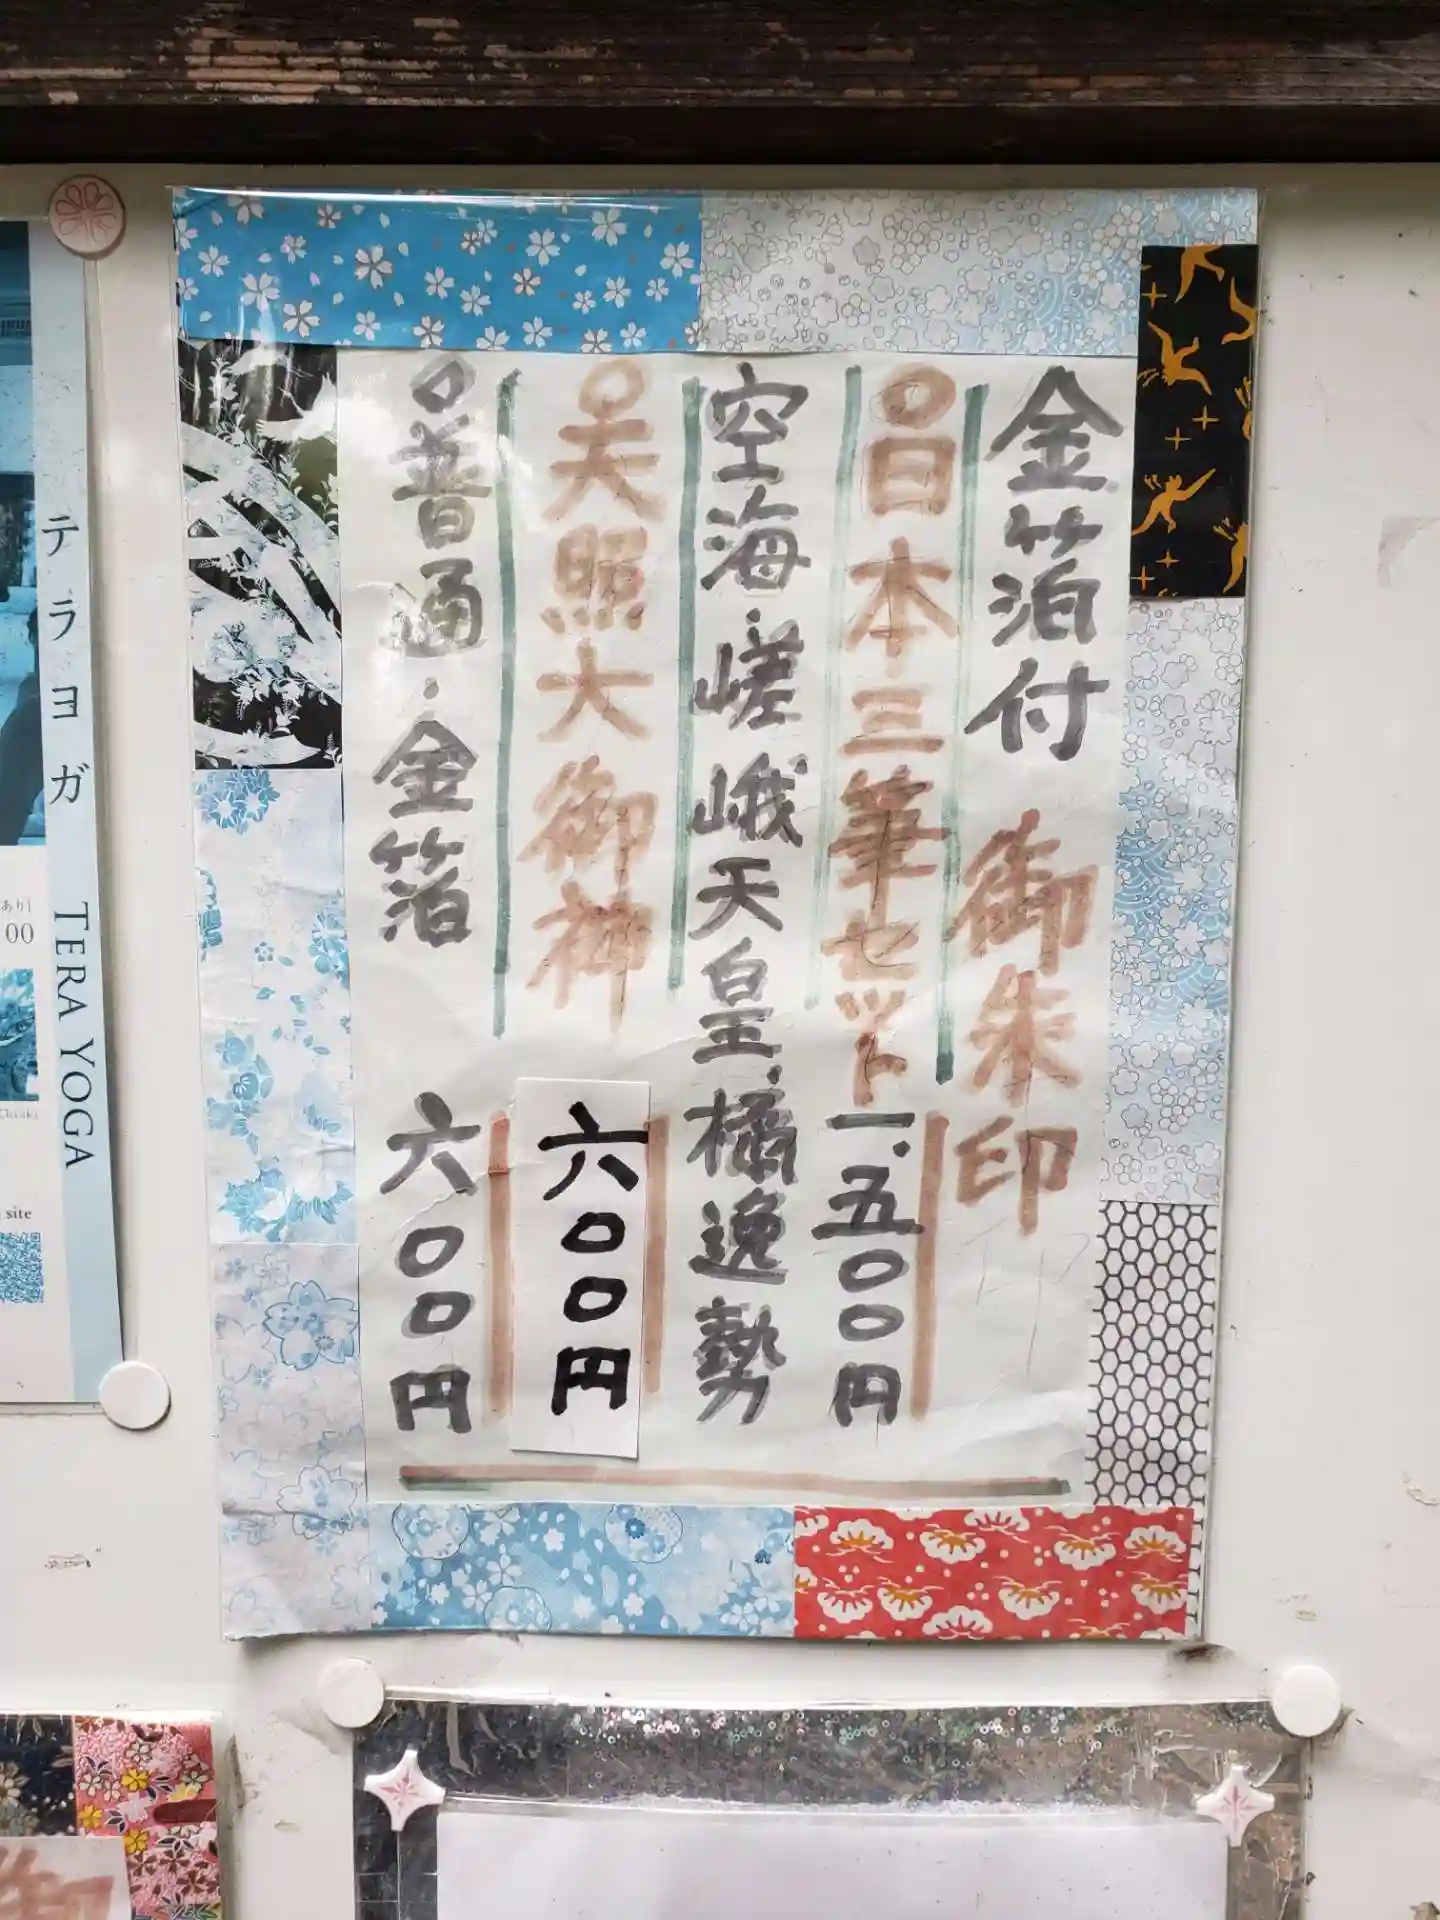 金箔付 御朱印
○日本三筆セット 一、五〇〇円
空海・嵯峨天皇・橘逸勢
○天照大御神 六〇〇円
○普通・金箔 六〇〇円
テラヨガ TERA YOGA
あり
00
Chiaki
site
御